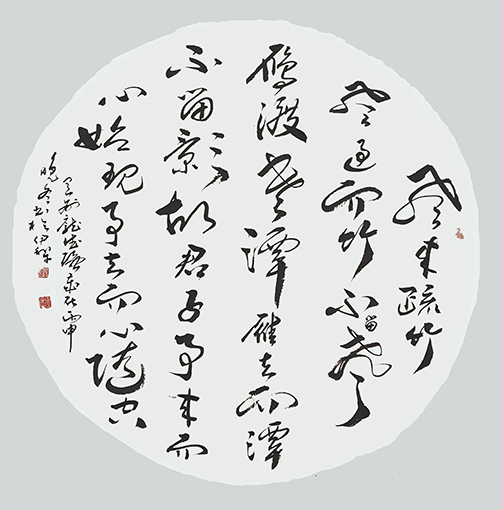 風來疏竹
風過而竹不留聲
鴈渡寒潭雁去而潭
不留影故君子事來而
心始現事去而心隨空
丙申
晚冬書於伊犁